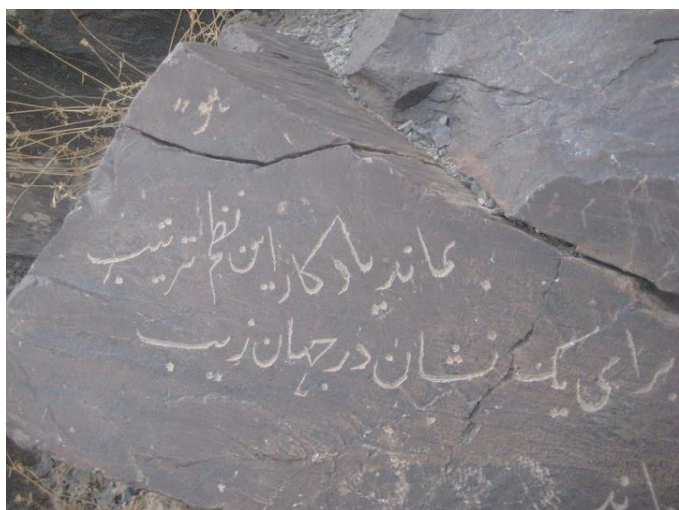 "هو"
بماند یادگار این نظم ترتیب
برای یک نشان در جهان زیب